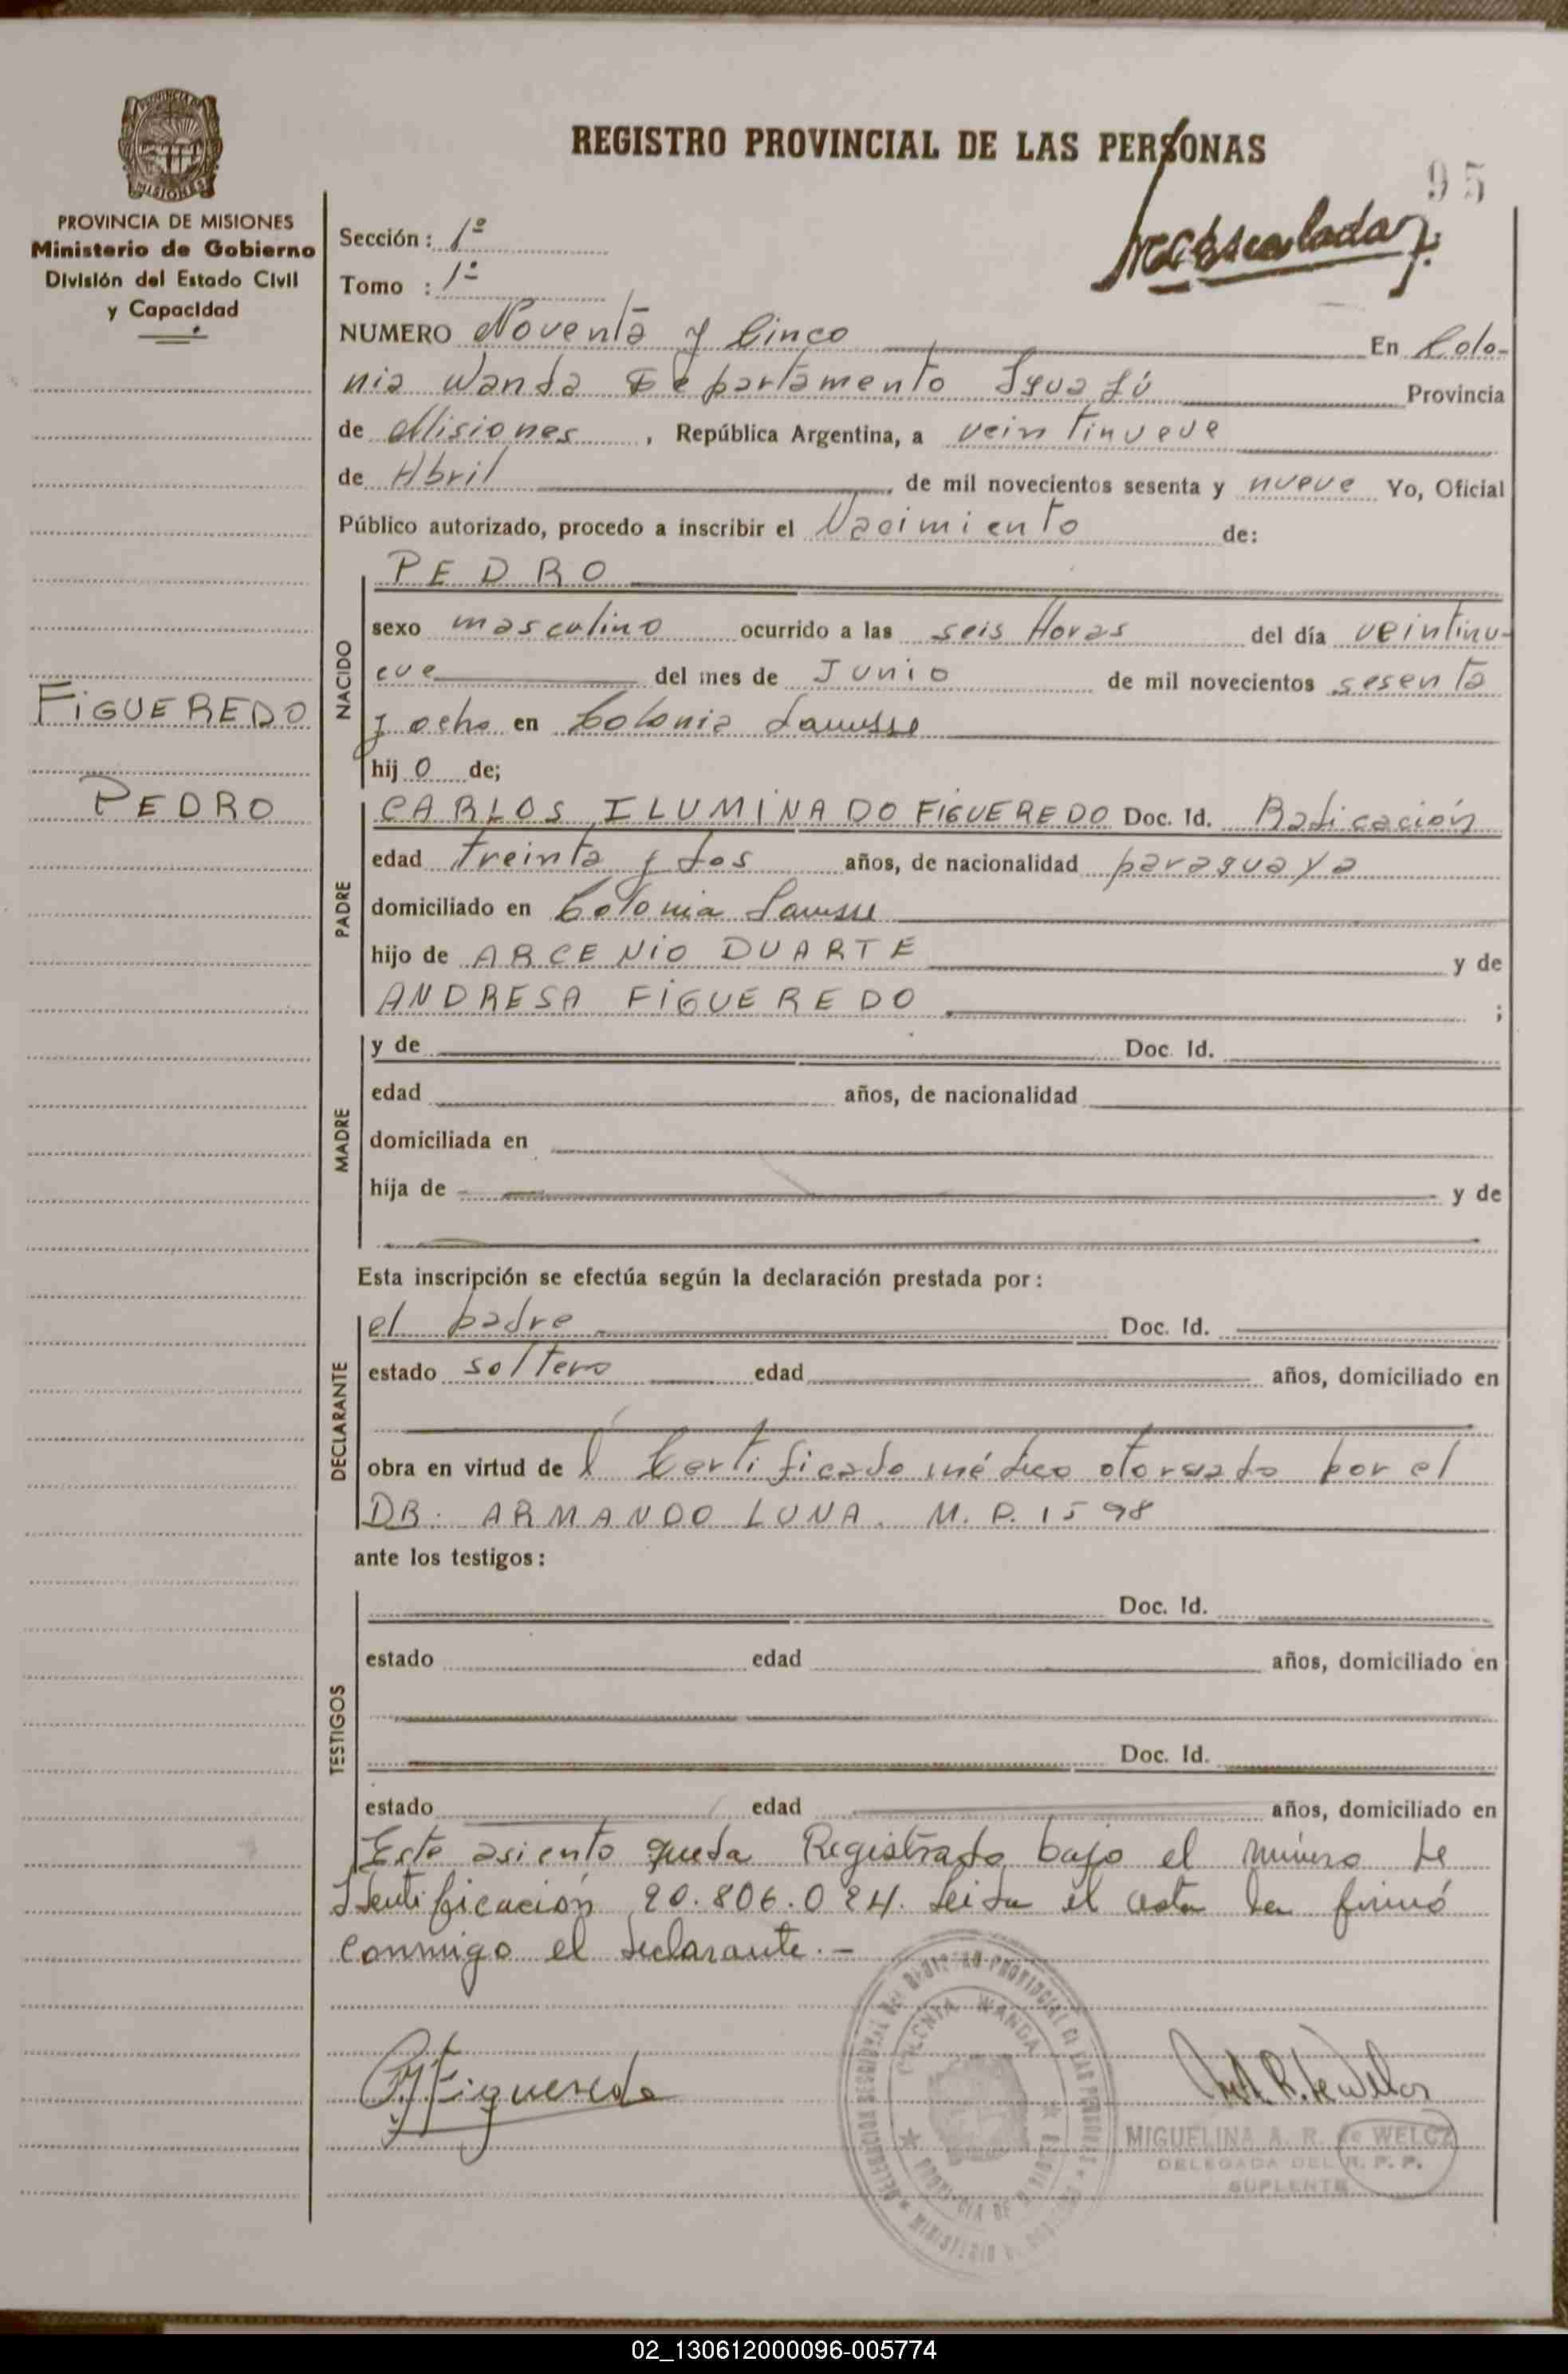 REGISTRO PROVINCIAL DE LAS PERSONAS
95
PROVINCIA DE MISIONES
MISIONES
PROVINCIA DE MISIONES
Ministerio de Gobierno
División del Estado Civil
y Capacidad
Sección: 1º
Tomo : 1º
NUMERO Noventa y Cinco En Colo-
nia Wanda Departamento Iguazú Provincia
de Misiones, República Argentina, a veintinueve
de Abril de mil novecientos sesenta y nueve Yo, Oficial
Público autorizado, procedo a inscribir el Nacimiento de:
NACIDO
PEDRO
sexo masculino ocurrido a las seis Horas del día veintinu-
eve del mes de Junio de mil novecientos sesenta
y ocho en Colonia Lanusse
hijo de;
FIGUEREDO
PEDRO
PADRE
CARLOS ILUMINADO FIGUEREDO Doc. Id. Radicación
edad treinta y dos años, de nacionalidad paraguaya
domiciliado en Colonia Lanusse
hijo de ARCENIO DUARTE y de
ANDRESA FIGUEREDO ;
MADRE
y de Doc. Id.
edad años, de nacionalidad
domiciliada en
hija de y de
Esta inscripción se efectúa según la declaración prestada por:
DECLARANTE
el padre Doc. Id.
estado soltero edad años, domiciliado en
obra en virtud de l Certificado médico otorgado por el
DR. ARMANDO LUNA. M. P. 1598
ante los testigos:
TESTIGOS
Doc. Id.
estado edad años, domiciliado en
Doc. Id.
estado edad años, domiciliado en
Este asiento queda Registrado bajo el número de
Identificación 20.806.024. Leida el acta la firmó
conmigo el declarante.-
Figueredo
COLONIA WANDA
MIGUELINA A. R. de WELCZ
DELEGADA DEL R. P. P.
SUPLENTE
02_130612000096-005774